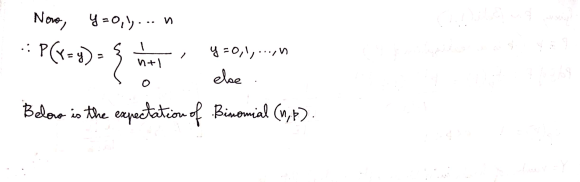 Now, y = 0, 1, ... n
∴ P(Y=y) = { 1/(n+1) , y = 0, 1, ..., n
0 else .
Below is the expectation of Binomial (n, p).